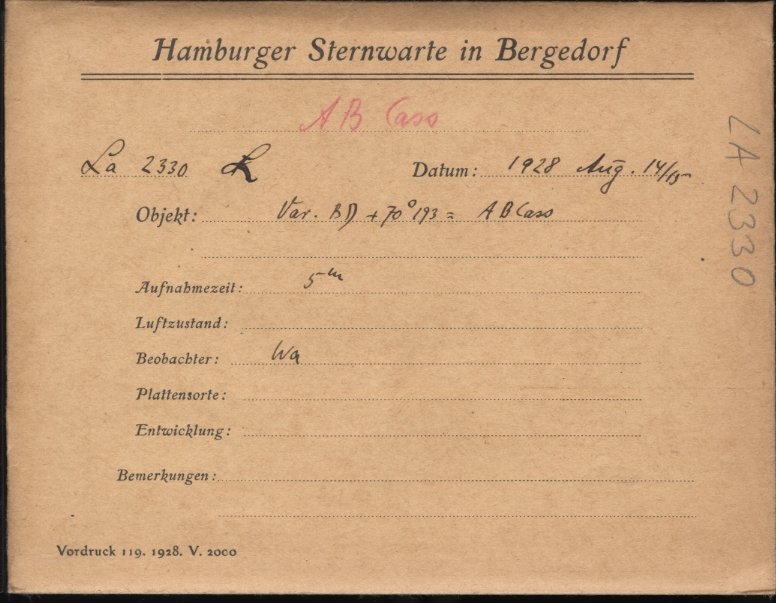 Hamburger Sternwarte in Bergedorf
AB Cass
La 2330
Datum: 1928 Aug. 14/15
Objekt: Var. BD +70°193 = AB Cass
Aufnahmezeit: 5m
Luftzustand:
Beobachter: Wa
Plattensorte:
Entwicklung:
Bemerkungen:
Vordruck 119. 1928. V. 2000
LA 2330